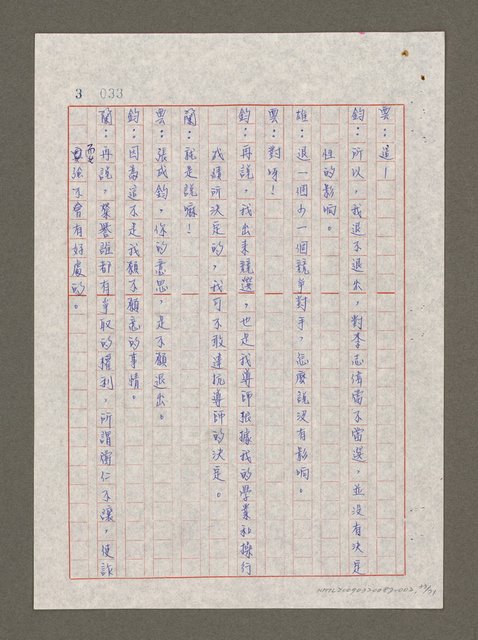 3 033
雲：這！
鈞：所以，我退不退出，對李志偉當不當選，並沒有決定
性的影响。
雄：退一個少一個競争對手，怎麼說没有影响。
雲：對呀！
鈞：再説，我出來競選，也是我導師根據我的學業和操行
成績所決定的，我可不敢違抗導師的決定。
蘭：就是説嘛！
雲：張成鈞，你的意思，是不願退出。
鈞：因為這不是我願不願意的事情。
蘭：再説，榮譽誰都有争取的權利，所謂當仁不讓，使詐
耍派不會有好處的。